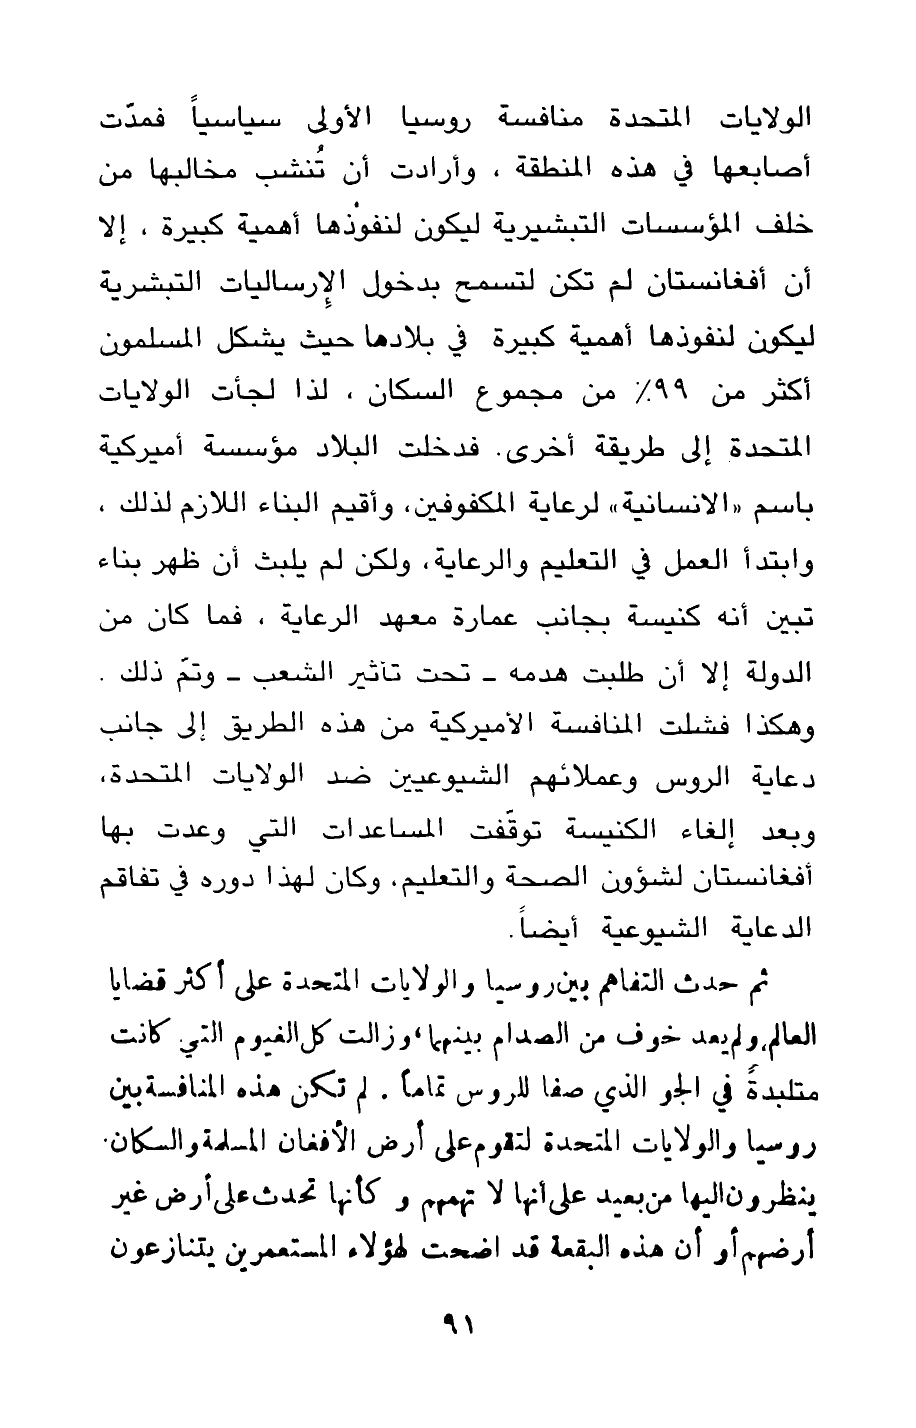 الولايات المتحدة منافسة روسيا الأولى سياسياً فمدّت
أصابعها في هذه المنطقة ، وأرادت أن تُنشب مخالبها من
خلف المؤسسات التبشيرية ليكون لنفوذها أهمية كبيرة ، إلا
أن أفغانستان لم تكن لتسمح بدخول الإرساليات التبشرية
ليكون لنفوذها أهمية كبيرة في بلادها حيث يشكل المسلمون
أكثر من ٩٩٪ من مجموع السكان ، لذا لجأت الولايات
المتحدة إلى طريقة أخرى. فدخلت البلاد مؤسسة أميركية
باسم «الانسانية» لرعاية المكفوفين، وأقيم البناء اللازم لذلك ،
وابتدأ العمل في التعليم والرعاية، ولكن لم يلبث أن ظهر بناء
تبين أنه كنيسة بجانب عمارة معهد الرعاية ، فما كان من
الدولة إلا أن طلبت هدمه ـ تحت تأثير الشعب ـ وتمّ ذلك .
وهكذا فشلت المنافسة الأميركية من هذه الطريق إلى جانب
دعاية الروس وعملائهم الشيوعيين ضد الولايات المتحدة،
وبعد إلغاء الكنيسة توقّفت المساعدات التي وعدت بها
أفغانستان لشؤون الصحة والتعليم، وكان لهذا دوره في تفاقم
الدعاية الشيوعية أيضاً.
ثم حدث التفاهم بين روسيا والولايات المتحدة على أكثر قضايا
العالم، ولم يعد خوف من الصدام بينهما، وزالت كل الغيوم التي كانت
متلبدةً في الجو الذي صفا للروس تماماً . لم تكن هذه المنافسة بين
روسيا والولايات المتحدة لتقوم على أرض الأفغان المسلمة والسكان
ينظرون اليها من بعيد على أنها لا تهمهم و كأنها تحدث على أرض غير
أرضهم أو أن هذه البقعة قد اضحت لهؤلاء المستعمرين يتنازعون
٩١